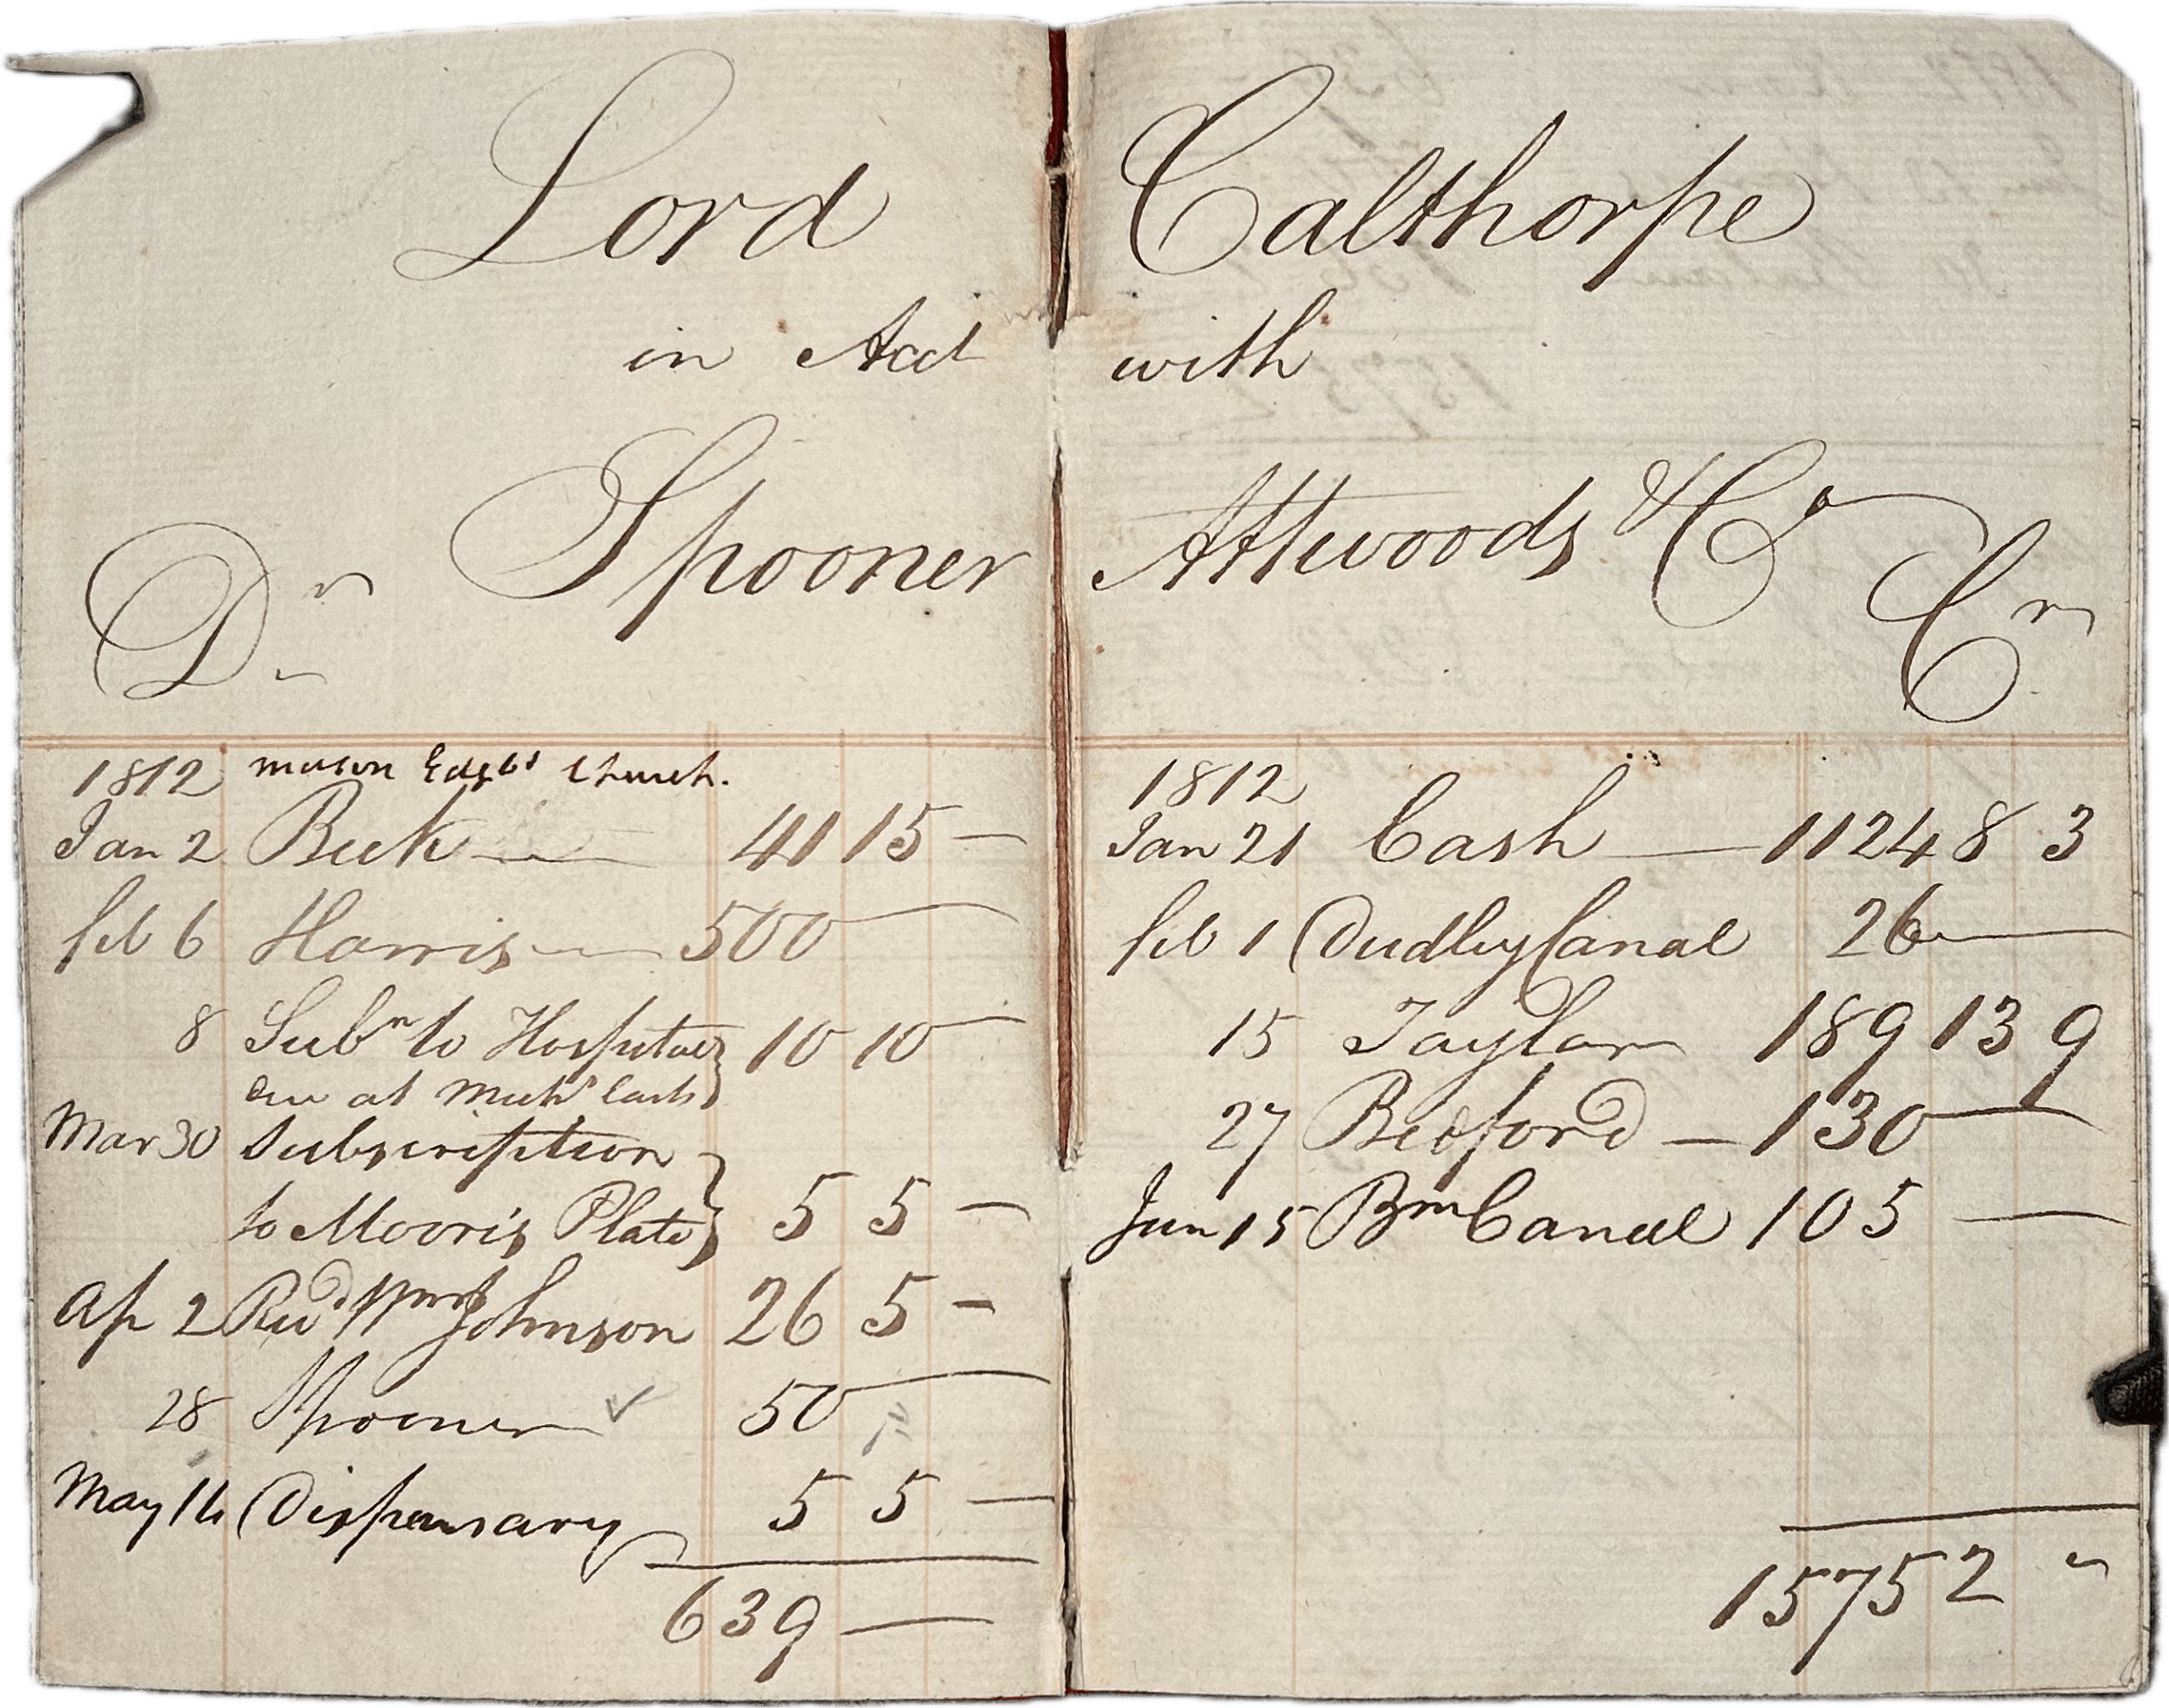 Lord Calthorpe
in Acct with
Spooner Attwoods & Co
Dr
Cr
1812 mason Edgbn Church.
Jan 2 Beck 41 15 —
feb 6 Harris 500 —
8 Subn to Hospital 10 10 —
Mar 30 Subscription
to Moor's Plate 5 5 —
Ap 2 Revd Wm Johnson 26 5 —
28 Spooner ✓ 50 —
May 16 Dispensary 5 5 —
639 —
1812
Jan 21 Cash — 1124 8 3
feb 1 Dudley Canal 26 —
15 Taylor 189 13 9
27 Bedford — 130 —
Jun 15 Bm Canal 105 —
1575 2 "